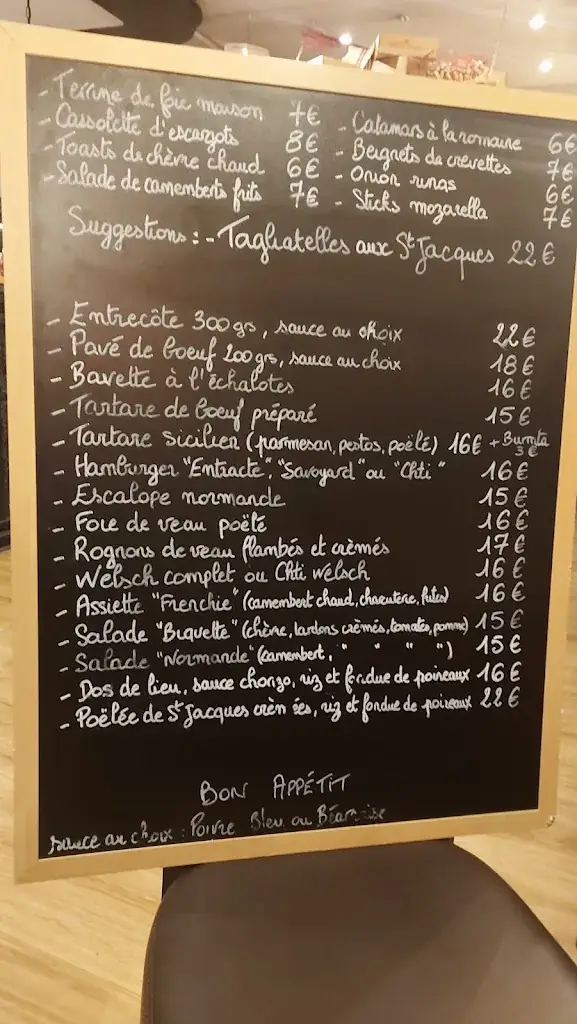 - Terrine de foie maison 7€
- Cassolette d'escargots 8€
- Toasts de chèvre chaud 6€
- Salade de camemberts frits 7€
- Calamars à la romaine 6€
- Beignets de crevettes 7€
- Onion rings 6€
- Sticks mozarella 7€
Suggestions : - Tagliatelles aux St Jacques 22€
- Entrecôte 300grs, sauce au choix 22€
- Pavé de boeuf 200grs, sauce au choix 18€
- Bavette à l'échalotes 16€
- Tartare de boeuf préparé 15€
- Tartare sicilien (parmesan, pestos, poëlé) 16€ + Burrata 3€
- Hamburger "Entracte", "Savoyard" ou "Chti" 16€
- Escalope normande 15€
- Foie de veau poëlé 16€
- Rognons de veau flambés et crèmés 17€
- Welsch complet ou Chti Welsch 16€
- Assiette "Frenchie" (camembert chaud, charcuterie, frites) 16€
- Salade "Biquette" (chèvre, lardons crèmés, tomates, pomme) 15€
- Salade "Normande" (camembert, " " " ") 15€
- Dos de lieu, sauce chorizo, riz et fondue de poireaux 16€
- Poëlée de St Jacques crèm ées, riz et fondue de poireaux 22€
BON APPÉTIT
sauce au choix : Poivre Bleu ou Béarnaise